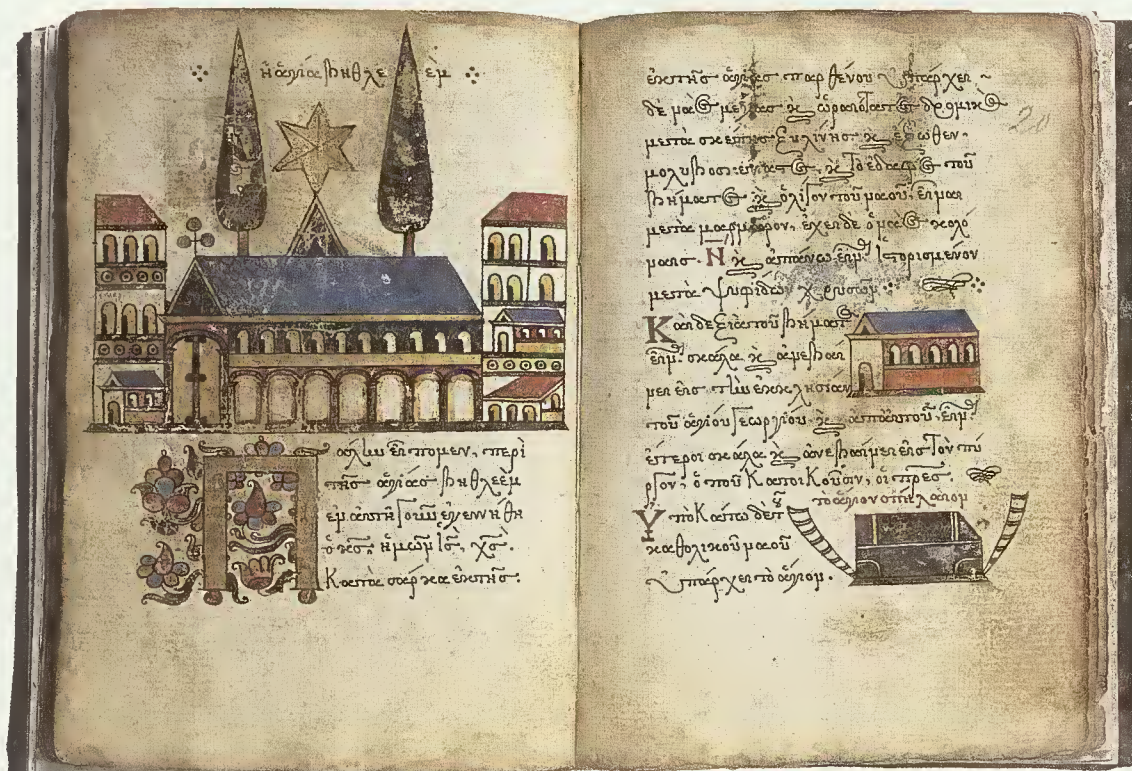 ἡ ἁγία Βηθλεέμ
Πάλιν εἴπομεν, περὶ
τῆς ἁγίας Βηθλεὲμ
ἐμ αυτῆ γοῦν ἐγεννήθη
ὁ κς, ἡμῶν ις, χς.
Κατὰ σάρκα ἐκ τῆς
ἐκ τῆς ἁγίας παρθένου Ὑπάρχει
δὲ ναὸς μέγας καὶ ὡραιότατος δρομικὸς
μετὰ σκέπης ξυλίνης καὶ ἔξωθεν
μολυβοσκέπαστος, καὶ Τὸ ἔδαφος τοῦ
βήματος καὶ ὀλίγον τοῦ ναοῦ, εἶναι
μετὰ μαρμάρου, ἔχει δὲ ὁ ναὸς κολό
ναις. Ν καὶ ἀπάνω εἶν Ἱστορισμένον
μετὰ ψηφίδων χρυσῶν
Καὶ δεξιὰ τοῦ βήματος
εἶν σκάλα καὶ
εἰς τὴν ἐκκλησίαν
τοῦ ἁγίου Γεωργίου καὶ ἀπ αὐτοῦ, εἶν
ἑτέρα σκάλα καὶ ἀνεβαίνει εἰς Τὸν πύ
ργον, ὁποῦ Κατοικοῦσιν, οἱ πρες
τὸ ἅγιον σπήλαιον
Ὑποκάτω δὲ τοῦ
καθολικοῦ ναοῦ
Ὑπάρχει τὸ ἅγιον.
20